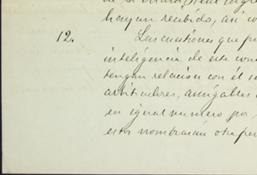 hayan recibido, así co
12. Las cuestiones que pu
inteligencia de este con
tengan relación con él s
arbitradores, amigables c
en igual numero por
estos nombrarán otra per